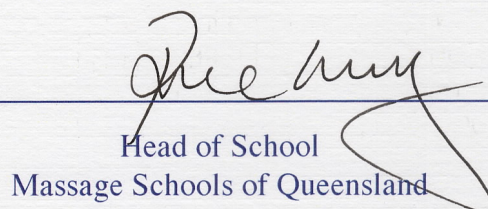 Head of School
Massage Schools of Queensland